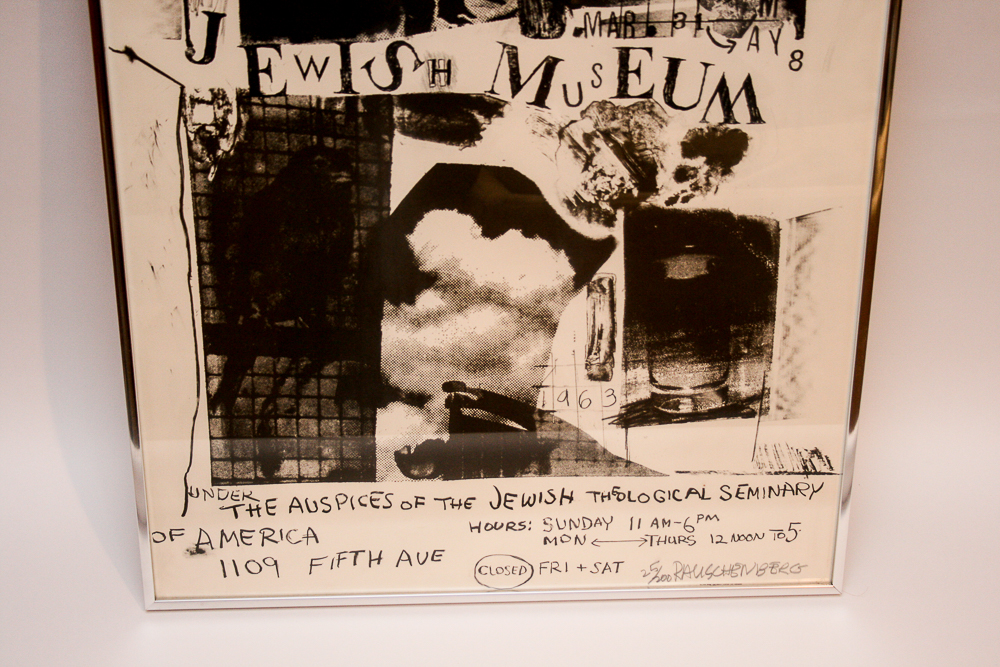 MAR. 31 → M
AY
8
J
EWISH MUSEUM
1963
UNDER
THE AUSPICES OF THE JEWISH THEOLOGICAL SEMINARY
OF AMERICA
HOURS: SUNDAY 11 AM-6PM
MON ↔ THURS 12 NOON TO 5
1109 FIFTH AVE
CLOSED FRI + SAT
25/200 RAUSCHENBERG